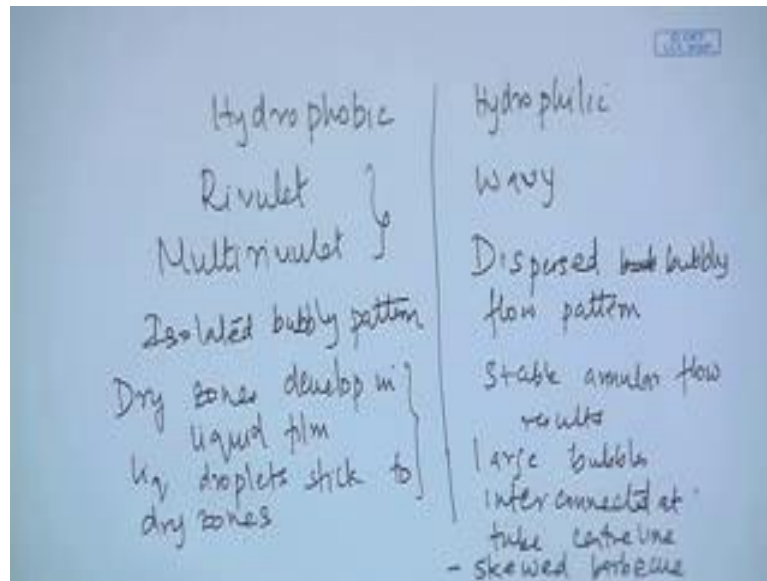 Hydrophobic
Rivulet
Multirivulet
Isolated bubbly pattern
Dry zones develop in
liquid film
liq droplets stick to
dry zones
Hydrophilic
Wavy
Dispersed bubbly
flow pattern
Stable annular flow
results
large bubbles
interconnected at
tube centreline
- skewed barbecue